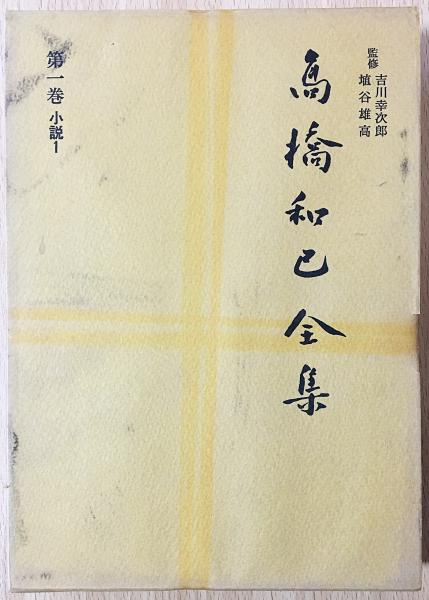 監修 吉川幸次郎
埴谷雄高
高橋和巳全集
第一巻 小説1